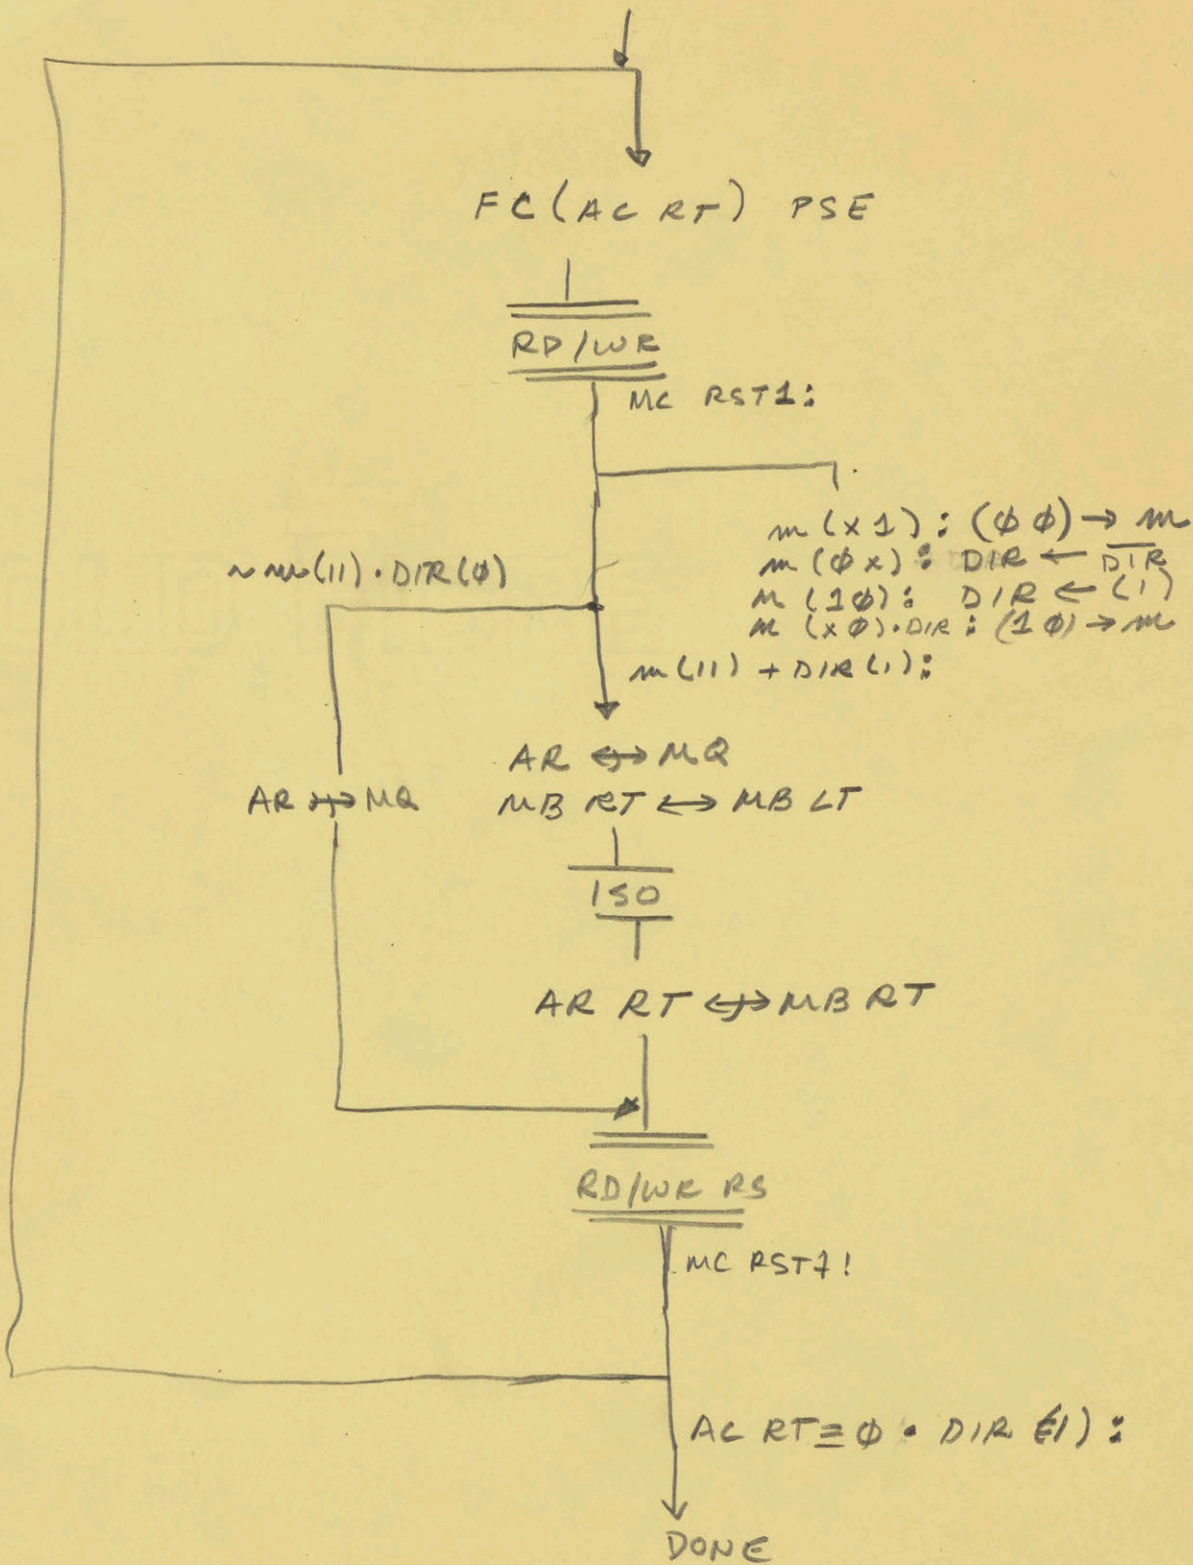 FC(AC RT) PSE
RD/WR
MC RST1:
m(x1): (φφ)→m
~m(11)·DIR(φ)
m(φx): DIR ← D̅I̅R̅
m(1φ): DIR ← (1)
m(xφ)·DIR: (1φ)→m
m(11)+DIR(1):
AR ↔ MQ
AR ↔ MQ
MB RT ↔ MB LT
ISO
AR RT ↔ MB RT
RD/WR RS
MC RST1!
AC RT≡φ · DIR (1):
DONE